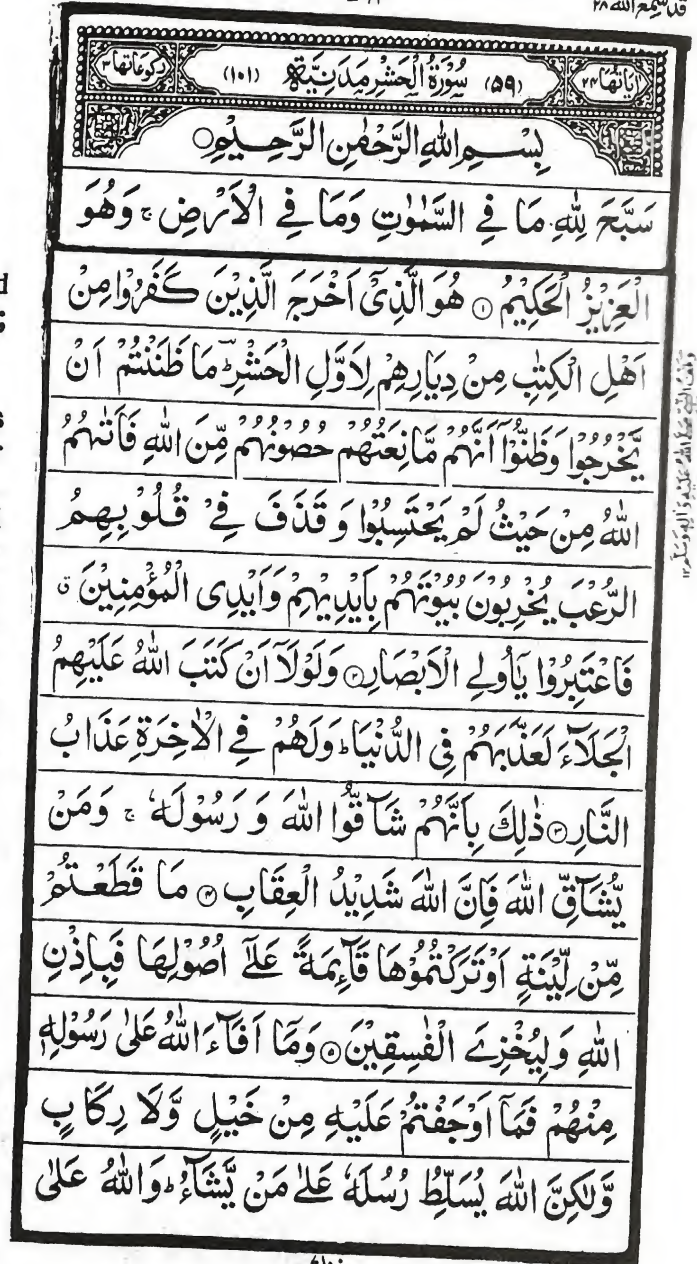 قد سمع الله ۲۸
اٰیاتها ۲۴ (۵۹) سُوْرَةُ الْحَشْرِ مَدَنِيَّةٌ (۱۰۱) رکوعاتها ۳
بِسْمِ اللهِ الرَّحْمٰنِ الرَّحِيْمِ ○
سَبَّحَ لِلّٰهِ مَا فِي السَّمٰوٰتِ وَمَا فِي الْاَرْضِ ۚ وَهُوَ
الْعَزِيْزُ الْحَكِيْمُ ۝۱ هُوَ الَّذِيْٓ اَخْرَجَ الَّذِيْنَ كَفَرُوْا مِنْ
اَهْلِ الْكِتٰبِ مِنْ دِيَارِهِمْ لِاَوَّلِ الْحَشْرِ ؔ مَا ظَنَنْتُمْ اَنْ
يَّخْرُجُوْا وَظَنُّوْٓا اَنَّهُمْ مَّانِعَتُهُمْ حُصُوْنُهُمْ مِّنَ اللهِ فَاَتٰىهُمُ
اللهُ مِنْ حَيْثُ لَمْ يَحْتَسِبُوْا وَقَذَفَ فِيْ قُلُوْبِهِمُ
الرُّعْبَ يُخْرِبُوْنَ بُيُوْتَهُمْ بِاَيْدِيْهِمْ وَاَيْدِى الْمُؤْمِنِيْنَ ق
فَاعْتَبِرُوْا يٰٓاُولِي الْاَبْصَارِ ۝۲ وَلَوْلَآ اَنْ كَتَبَ اللهُ عَلَيْهِمُ
الْجَلَآءَ لَعَذَّبَهُمْ فِي الدُّنْيَا ؕ وَلَهُمْ فِي الْاٰخِرَةِ عَذَابُ
النَّارِ ۝۳ ذٰلِكَ بِاَنَّهُمْ شَآقُّوا اللهَ وَرَسُوْلَهٗ ۚ وَمَنْ
يُّشَآقِّ اللهَ فَاِنَّ اللهَ شَدِيْدُ الْعِقَابِ ۝۴ مَا قَطَعْتُمْ
مِّنْ لِّيْنَةٍ اَوْ تَرَكْتُمُوْهَا قَآئِمَةً عَلٰٓى اُصُوْلِهَا فَبِاِذْنِ
اللهِ وَلِيُخْزِيَ الْفٰسِقِيْنَ ۝۵ وَمَآ اَفَآءَ اللهُ عَلٰى رَسُوْلِهٖ
مِنْهُمْ فَمَآ اَوْجَفْتُمْ عَلَيْهِ مِنْ خَيْلٍ وَّلَا رِكَابٍ
وَّلٰكِنَّ اللهَ يُسَلِّطُ رُسُلَهٗ عَلٰى مَنْ يَّشَآءُ ؕ وَاللهُ عَلٰى